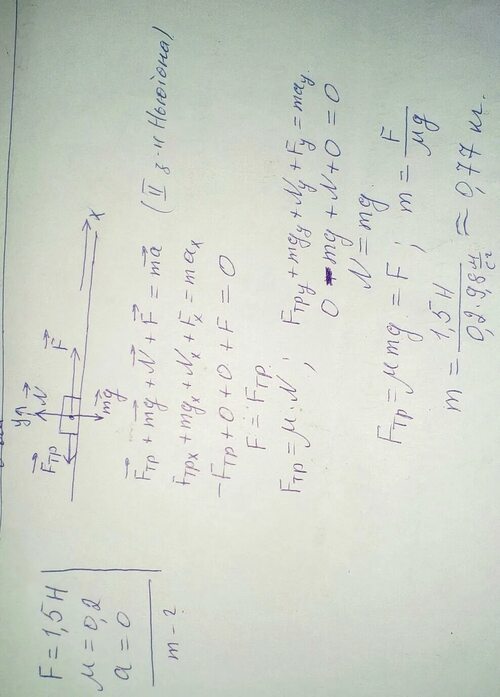 F = 1,5 Н
μ = 0,2
a = 0
m - ?
y N
Fтр F
mg X
Fтр + mg + N + F = ma (II з-н Ньютона)
Fтрx + mgx + Nx + Fx = max
-Fтр + 0 + 0 + F = 0
F = Fтр
Fтр = μ · N ; Fтрy + mgy + Ny + Fy = may
0 - mg + N + 0 = 0
N = mg
Fтр = μmg = F ; m = F/μg
m = 1,5 Н / 0,2 · 9,8 м/с² ≈ 0,77 кг.